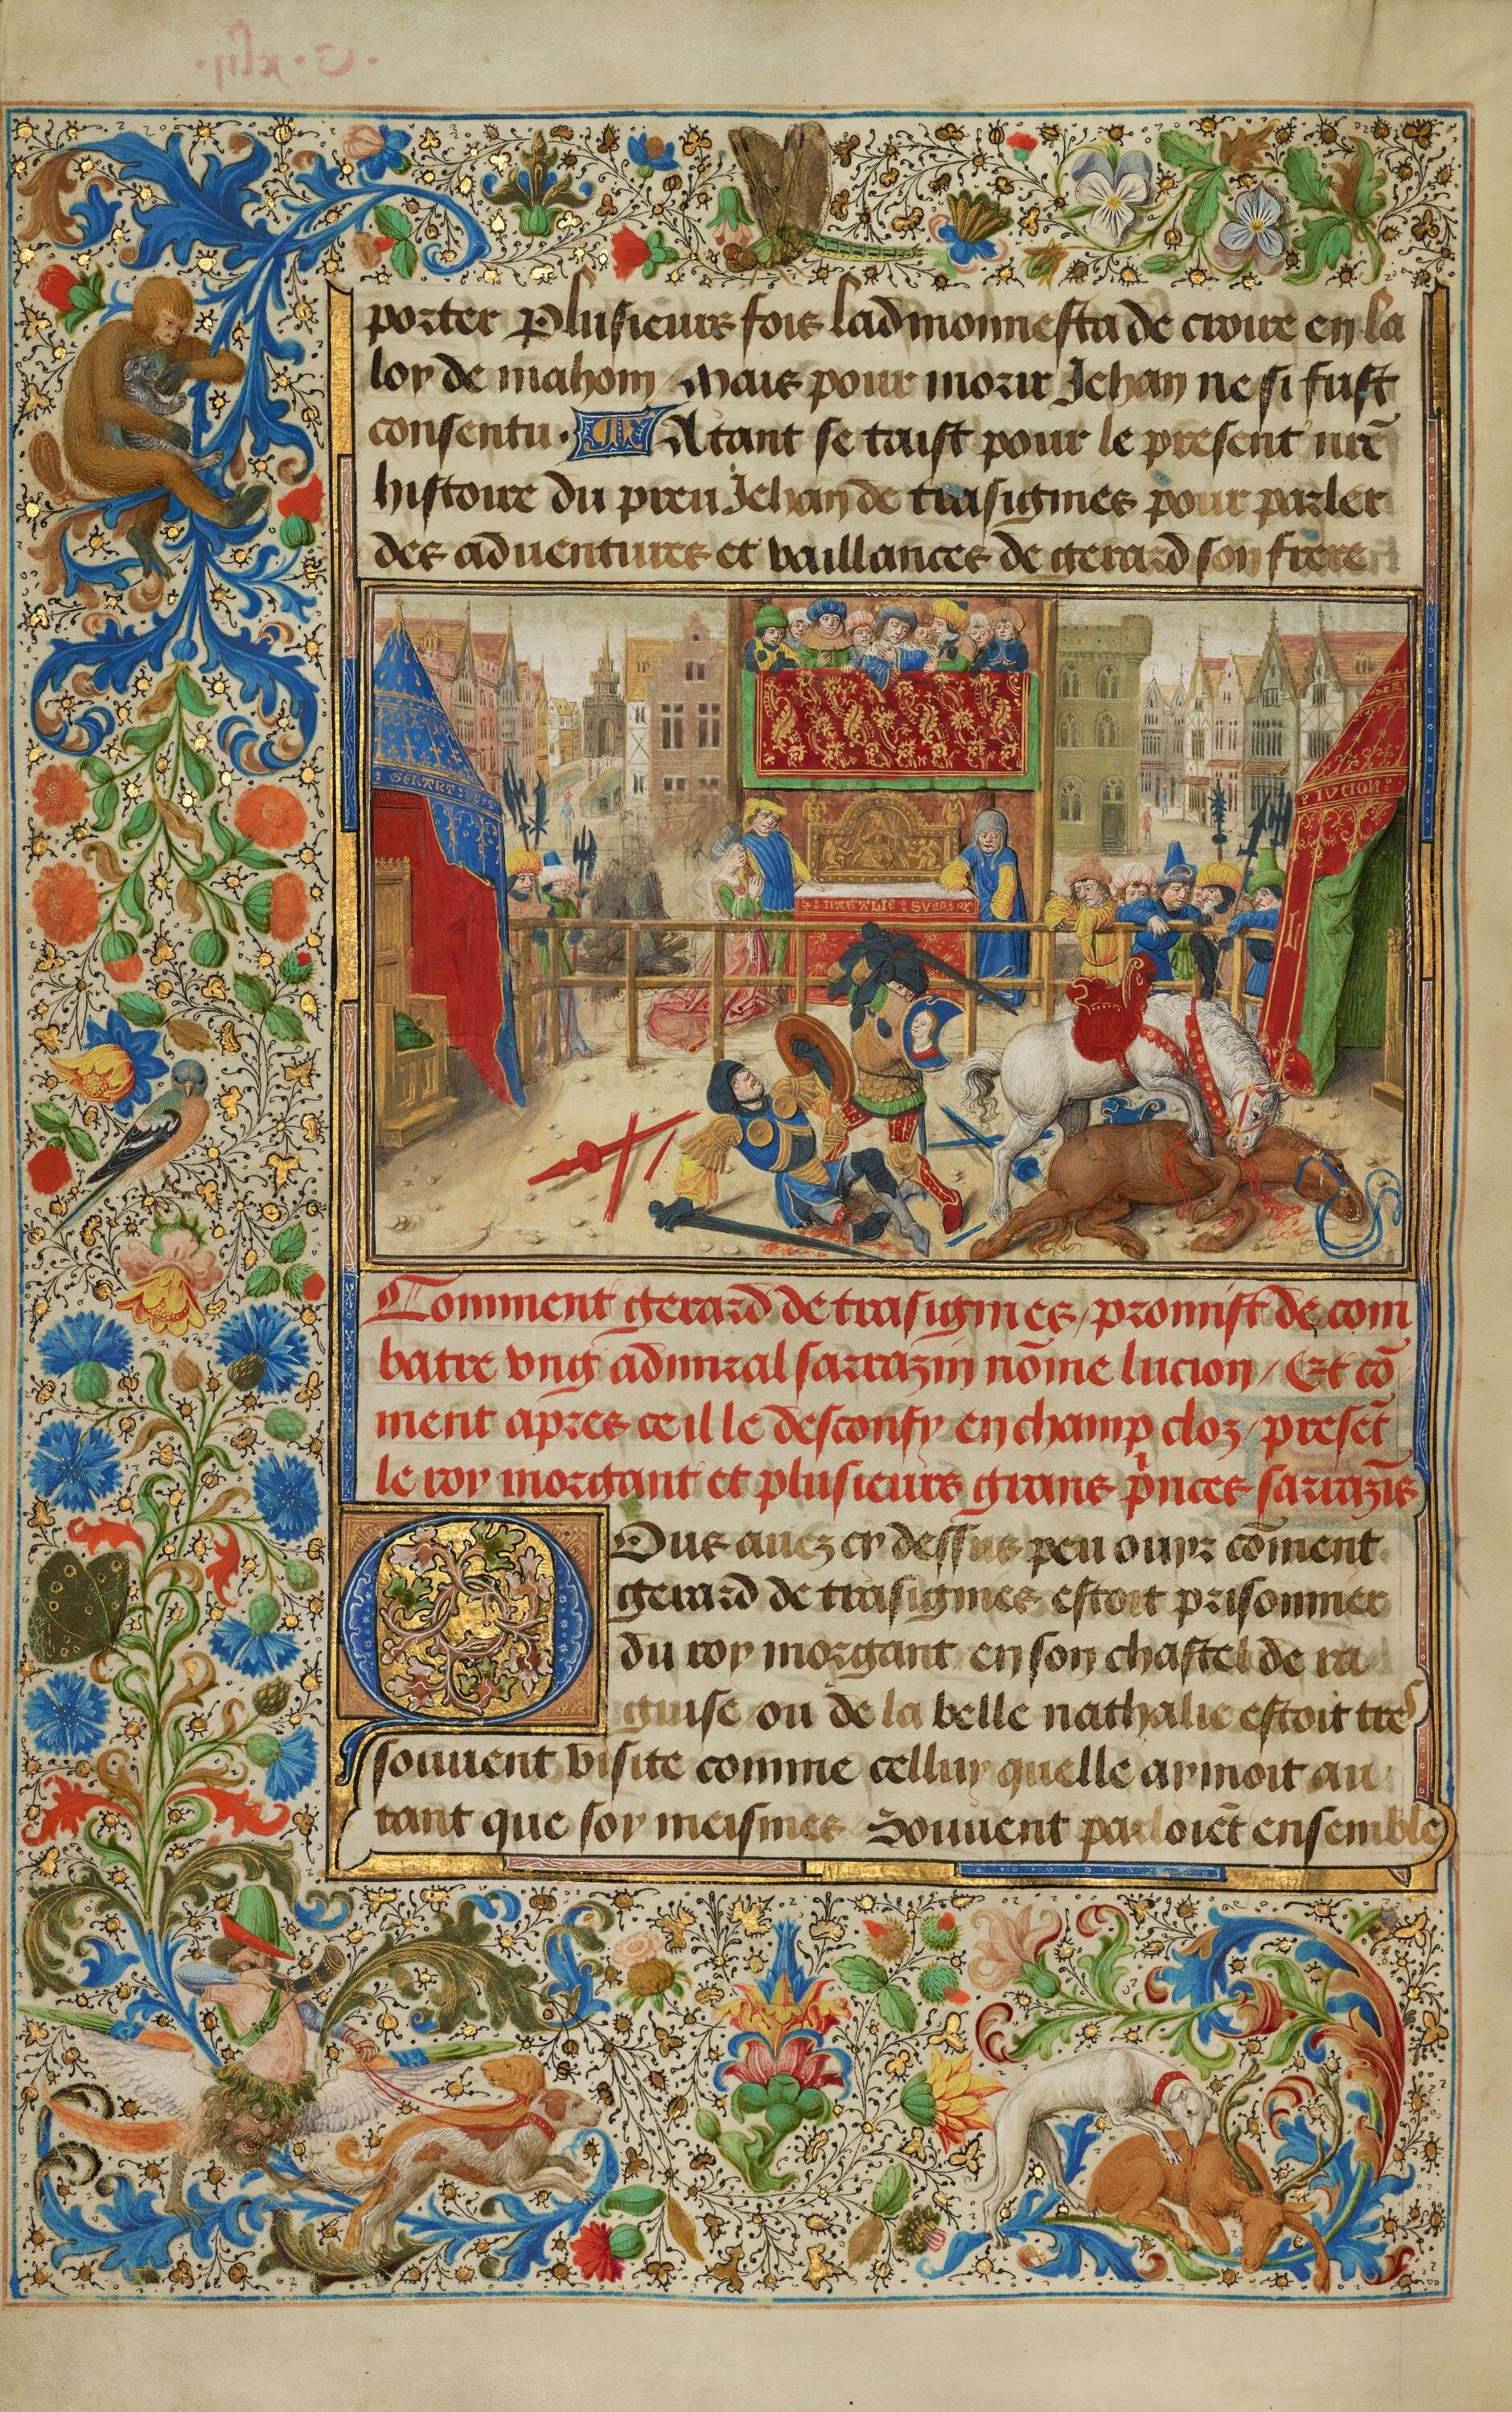 porter Plusieurs fois ladmonnesta de croire en la
loy de mahom Mais pour morir Jehan ne si fust
consentu. Atant se taist pour le present nr̃e
histoire du preu Jehan de trasignies pour parler
des aduentures et vaillances de gerard son frere
GERART
LVCION
NATALIE
Comment gerard de trasignies / promist de com
batre vng admiral sarrazin nõme lucion / Et cõ
ment apres ce il le desconfy en champ cloz / presẽt
le roy morgant et plusieurs grans p̃nces sarrazĩs
Ous auez cy dessus peu ouyr cõment
gerard de trasignies estoit prisonnier
du roy morgant en son chastel de ra
guise ou de la belle nathalie estoit tres
souuent visite comme celluy quelle aymoit au
tant que soy meismes Souuent parloiẽt ensemble